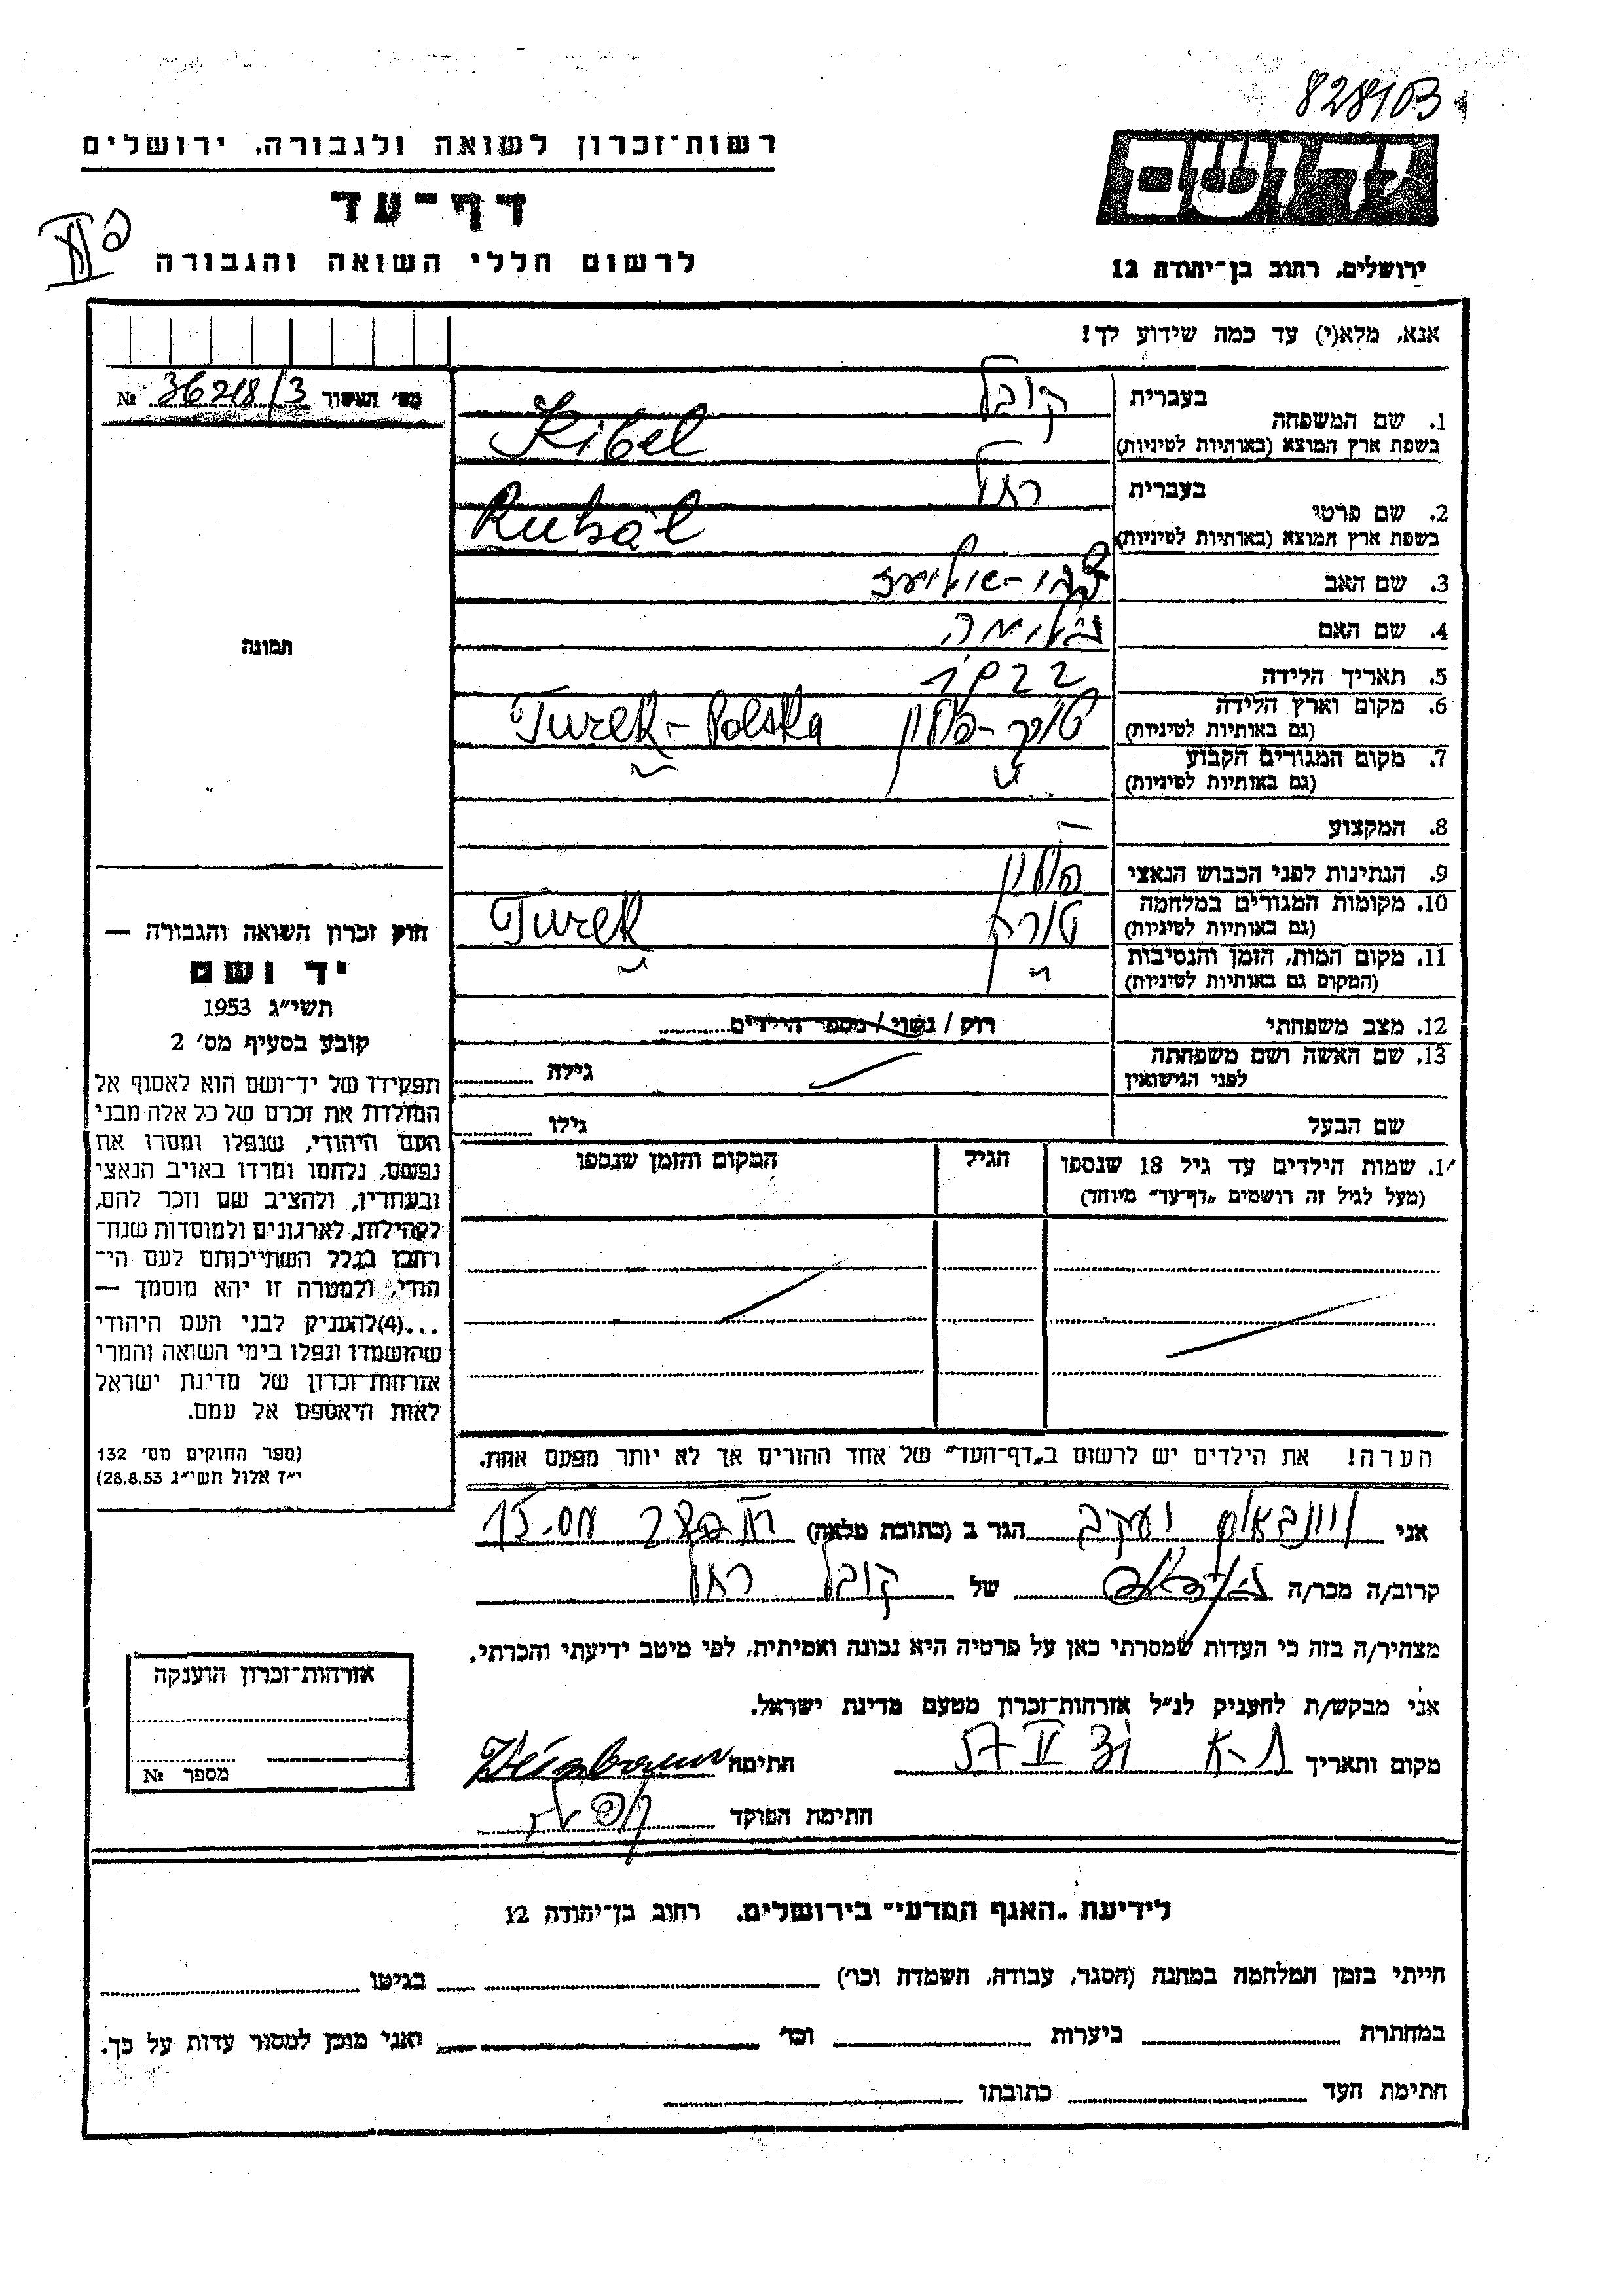 828103
רשות־זכרון לשואה ולגבורה, ירושלים
יד ושם
דף־עד
לרשום חללי השואה והגבורה
ירושלים, רחוב בן־יהודה 12
אנא, מלא(י) עד כמה שידוע לך!
מס׳ האשור 36218/3 №
1. שם המשפחה
בעברית קובל
בשפת ארץ המוצא (באותיות לטיניות) Kibel
2. שם פרטי
בעברית רחל
בשפת ארץ המוצא (באותיות לטיניות)
3. שם האב
4. שם האם
5. תאריך הלידה 1922
6. מקום וארץ הלידה
(גם באותיות לטיניות) טורק-פולין Turek-Polska
7. מקום המגורים הקבוע
(גם באותיות לטיניות) " "
8. המקצוע —
9. הנתינות לפני הכבוש הנאצי פולין
10. מקומות המגורים במלחמה
(גם באותיות לטיניות) טורק Turek
11. מקום המות, הזמן והנסיבות
(המקום גם באותיות לטיניות) " "
12. מצב משפחתי רוק / נשוי / מספר הילדים
13. שם האשה ושם משפחתה
לפני הנישואין גילה
שם הבעל גילו
14. שמות הילדים עד גיל 18 שנספו
(מעל לגיל זה רושמים „דף־עד” מיוחד)
הגיל
המקום והזמן שנספו
הערה! את הילדים יש לרשום ב„דף־העד” של אחד ההורים אך לא יותר מפעם אחת.
תמונה
חוק זכרון השואה והגבורה —
יד ושם
תשי״ג 1953
קובע בסעיף מס׳ 2
תפקידו של יד־ושם הוא לאסוף אל
המולדת את זכרם של כל אלה מבני
העם היהודי, שנפלו ומסרו את
נפשם, נלחמו ומרדו באויב הנאצי
ובעוזריו, ולהציב שם וזכר להם,
לקהילות, לארגונים ולמוסדות שנח־
רבו בגלל השתייכותם לעם הי־
הודי, ולמטרה זו יהא מוסמך —
...(4)להעניק לבני העם היהודי
שהושמדו ונפלו בימי השואה והמרי
אזרחות־זכרון של מדינת ישראל
לאות היאספם אל עמם.
(ספר החוקים מס׳ 132
י״ז אלול תשי״ג 28.8.53)
אני ויינבאום יעקב הגר ב (כתובת מלאה)
קרוב/ה מכר/ה של קובל רחל
מצהיר/ה בזה כי העדות שמסרתי כאן על פרטיה היא נכונה ואמיתית, לפי מיטב ידיעתי והכרתי.
אני מבקש/ת להעניק לנ״ל אזרחות־זכרון מטעם מדינת ישראל.
מקום ותאריך ת-א 31 V 57 חתימה Weinbaum
חתימת הפוקד
אזרחות־זכרון הוענקה
מספר №
לידיעת „האגף המדעי” בירושלים, רחוב בן־יהודה 12
הייתי בזמן המלחמה במחנה (הסגר, עבודה, השמדה וכו׳) בגיטו
במחתרת ביערות וכו׳ ואני מוכן למסור עדות על כך.
חתימת העד כתובתו